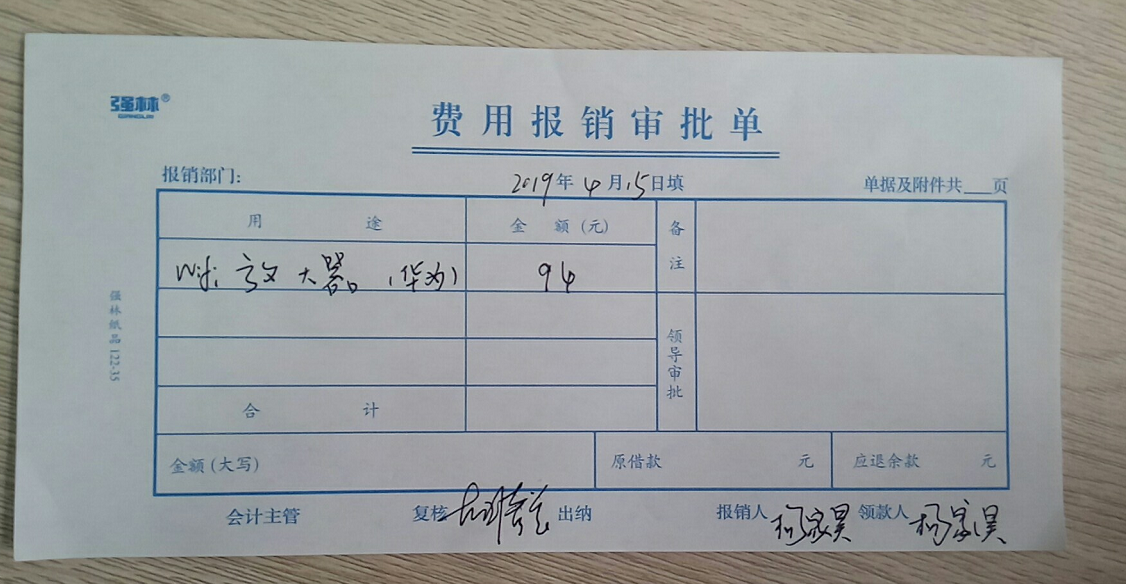 强林®
QIANGLIN
费用报销审批单
报销部门: 2019年4月15日填 单据及附件共___页
用途 金额(元) 备注
wifi放大器(华为) 94
强林纸品 122-35
领导审批
合计
金额(大写) 原借款 元 应退余款 元
会计主管 复核 出纳 报销人 杨家昊 领款人 杨家昊